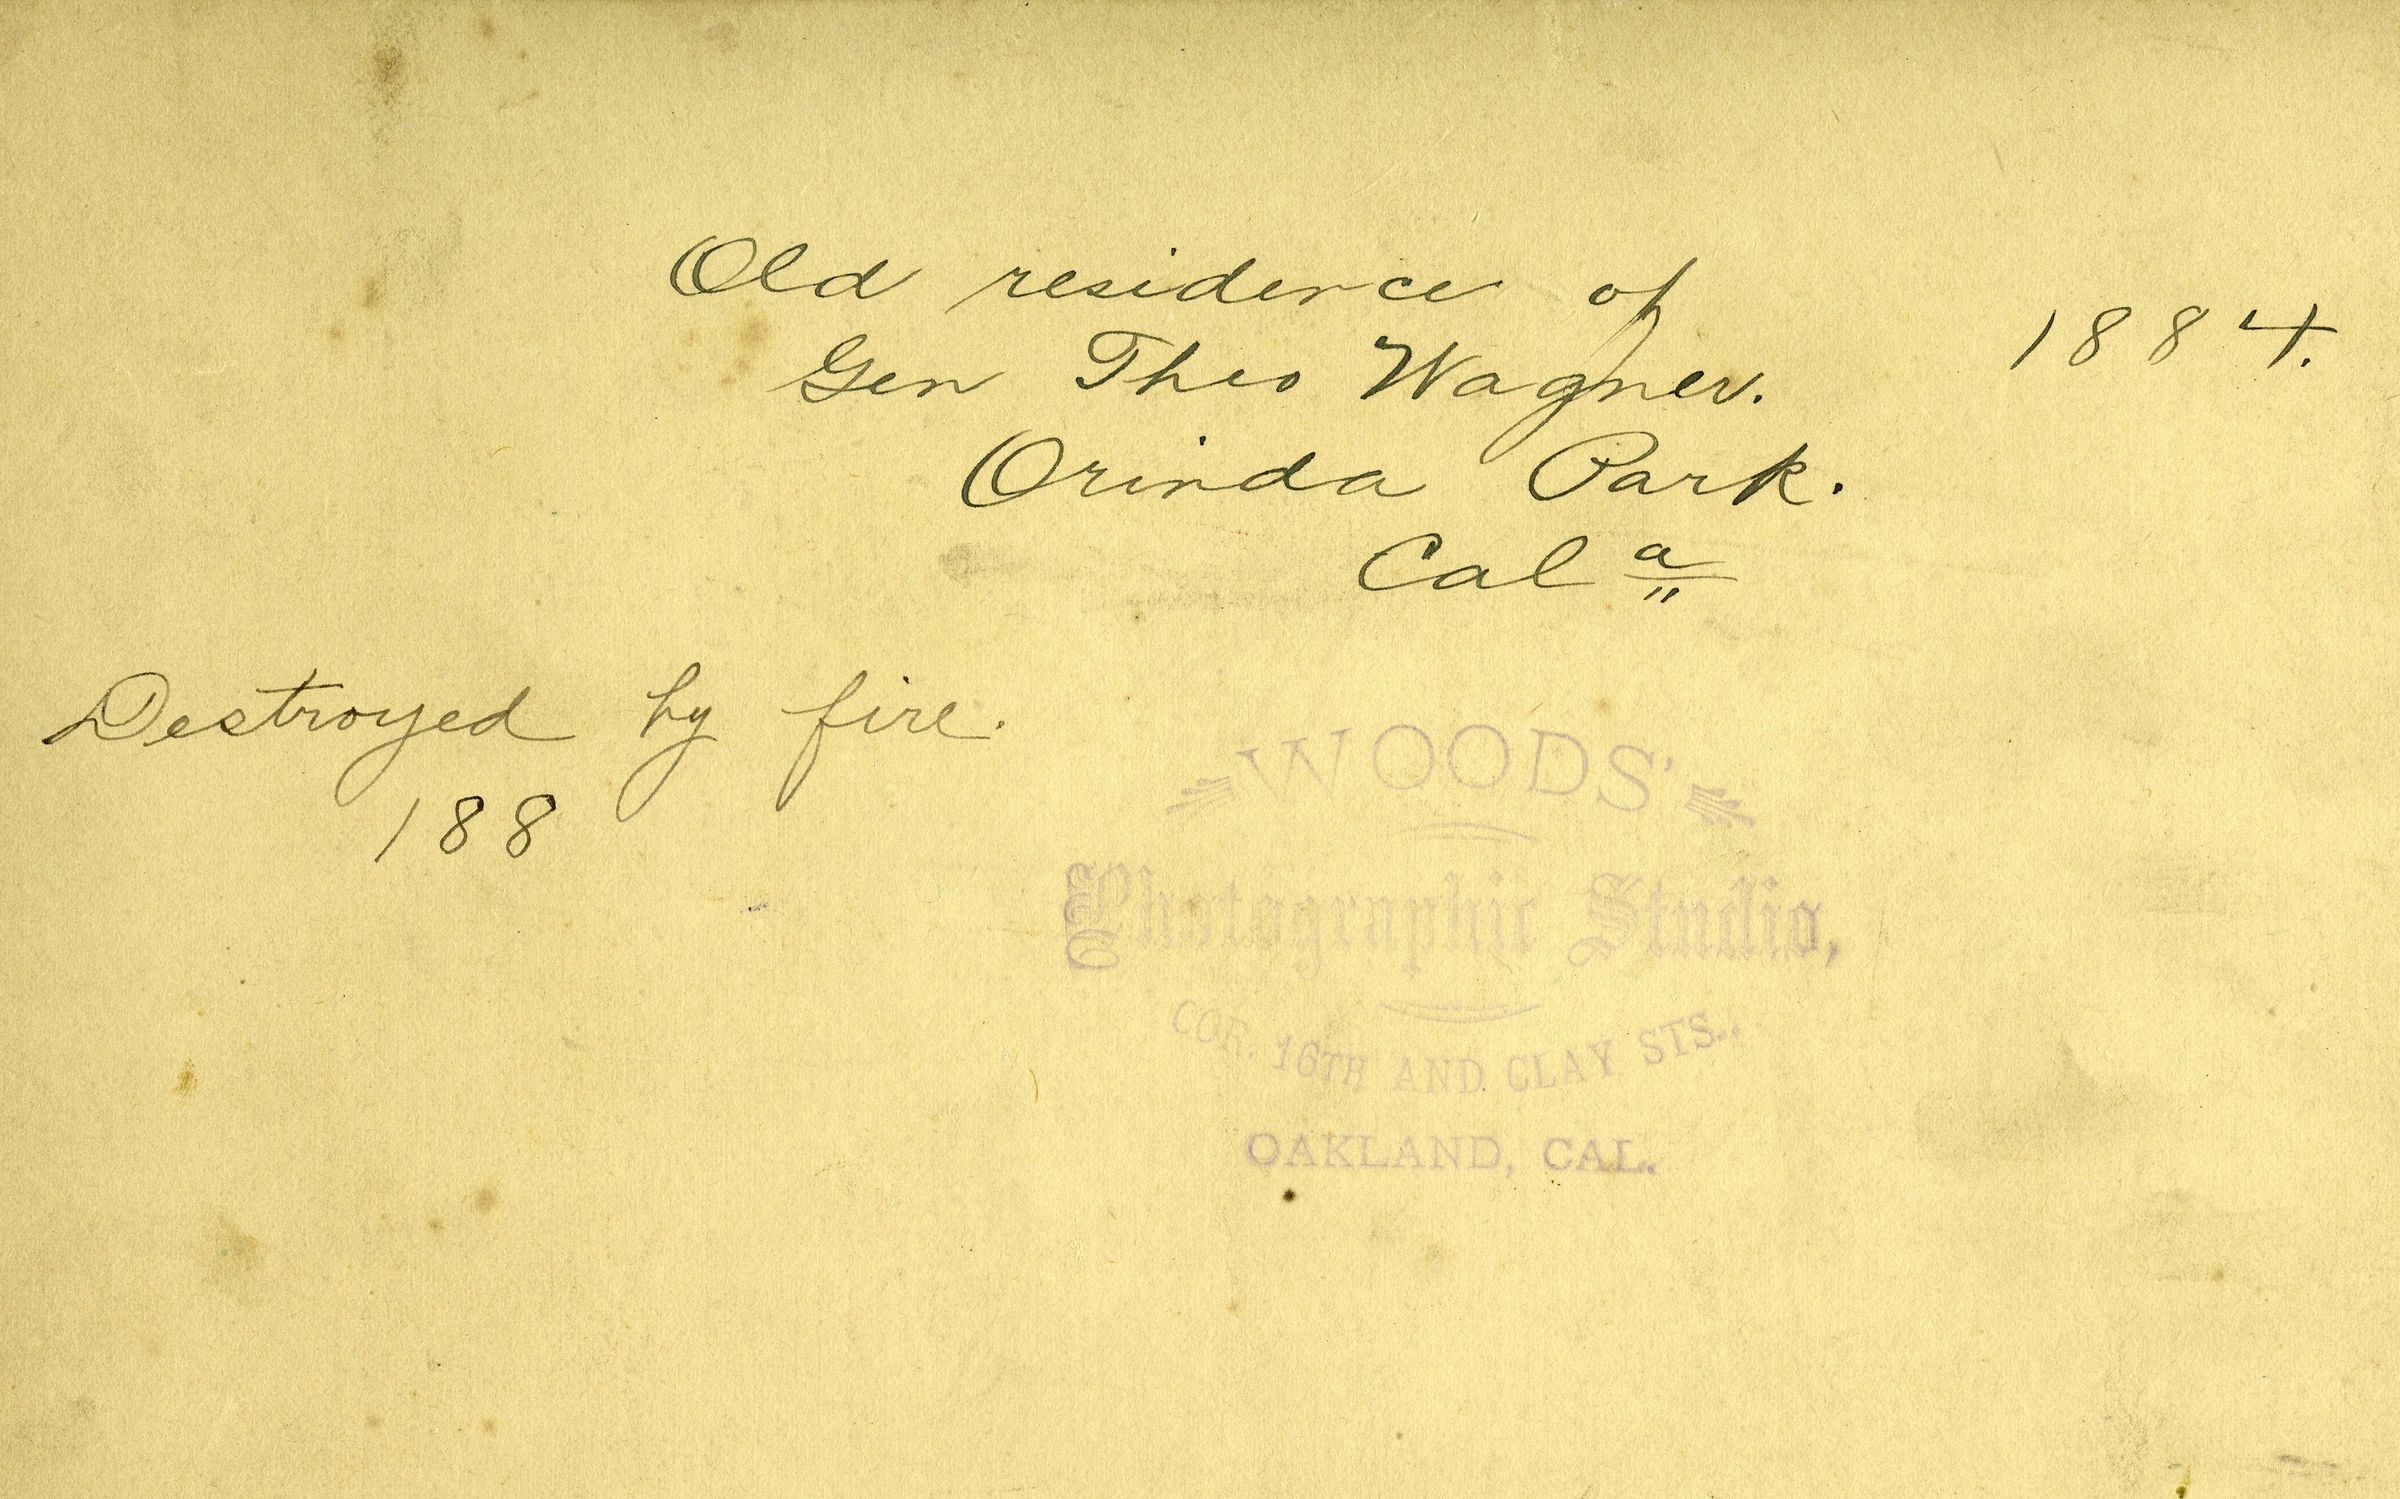 Old residence of
Gen Theo Wagner.
1884.
Orinda Park.
Cal a
Destroyed by fire.
188
WOODS'
Photographic Studio,
COR. 16TH AND CLAY STS.,
OAKLAND, CAL.